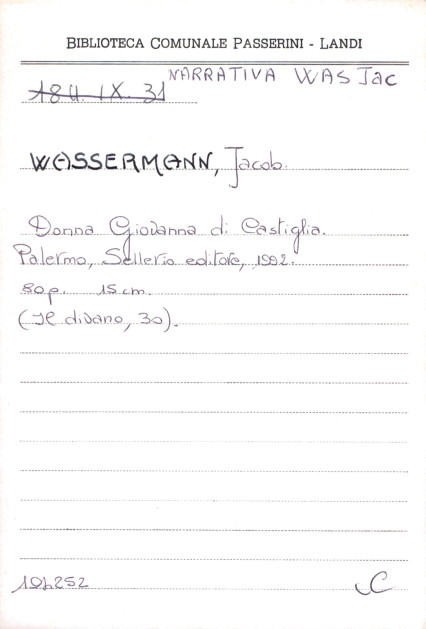 BIBLIOTECA COMUNALE PASSERINI - LANDI
NARRATIVA WAS Jac
18U. IX. 31
WASSERMANN, Jacob.
Donna Giovanna di Castiglia.
Palermo, Sellerio editore, 1992.
80 p. 15 cm.
(Il divano, 30).
104252
C